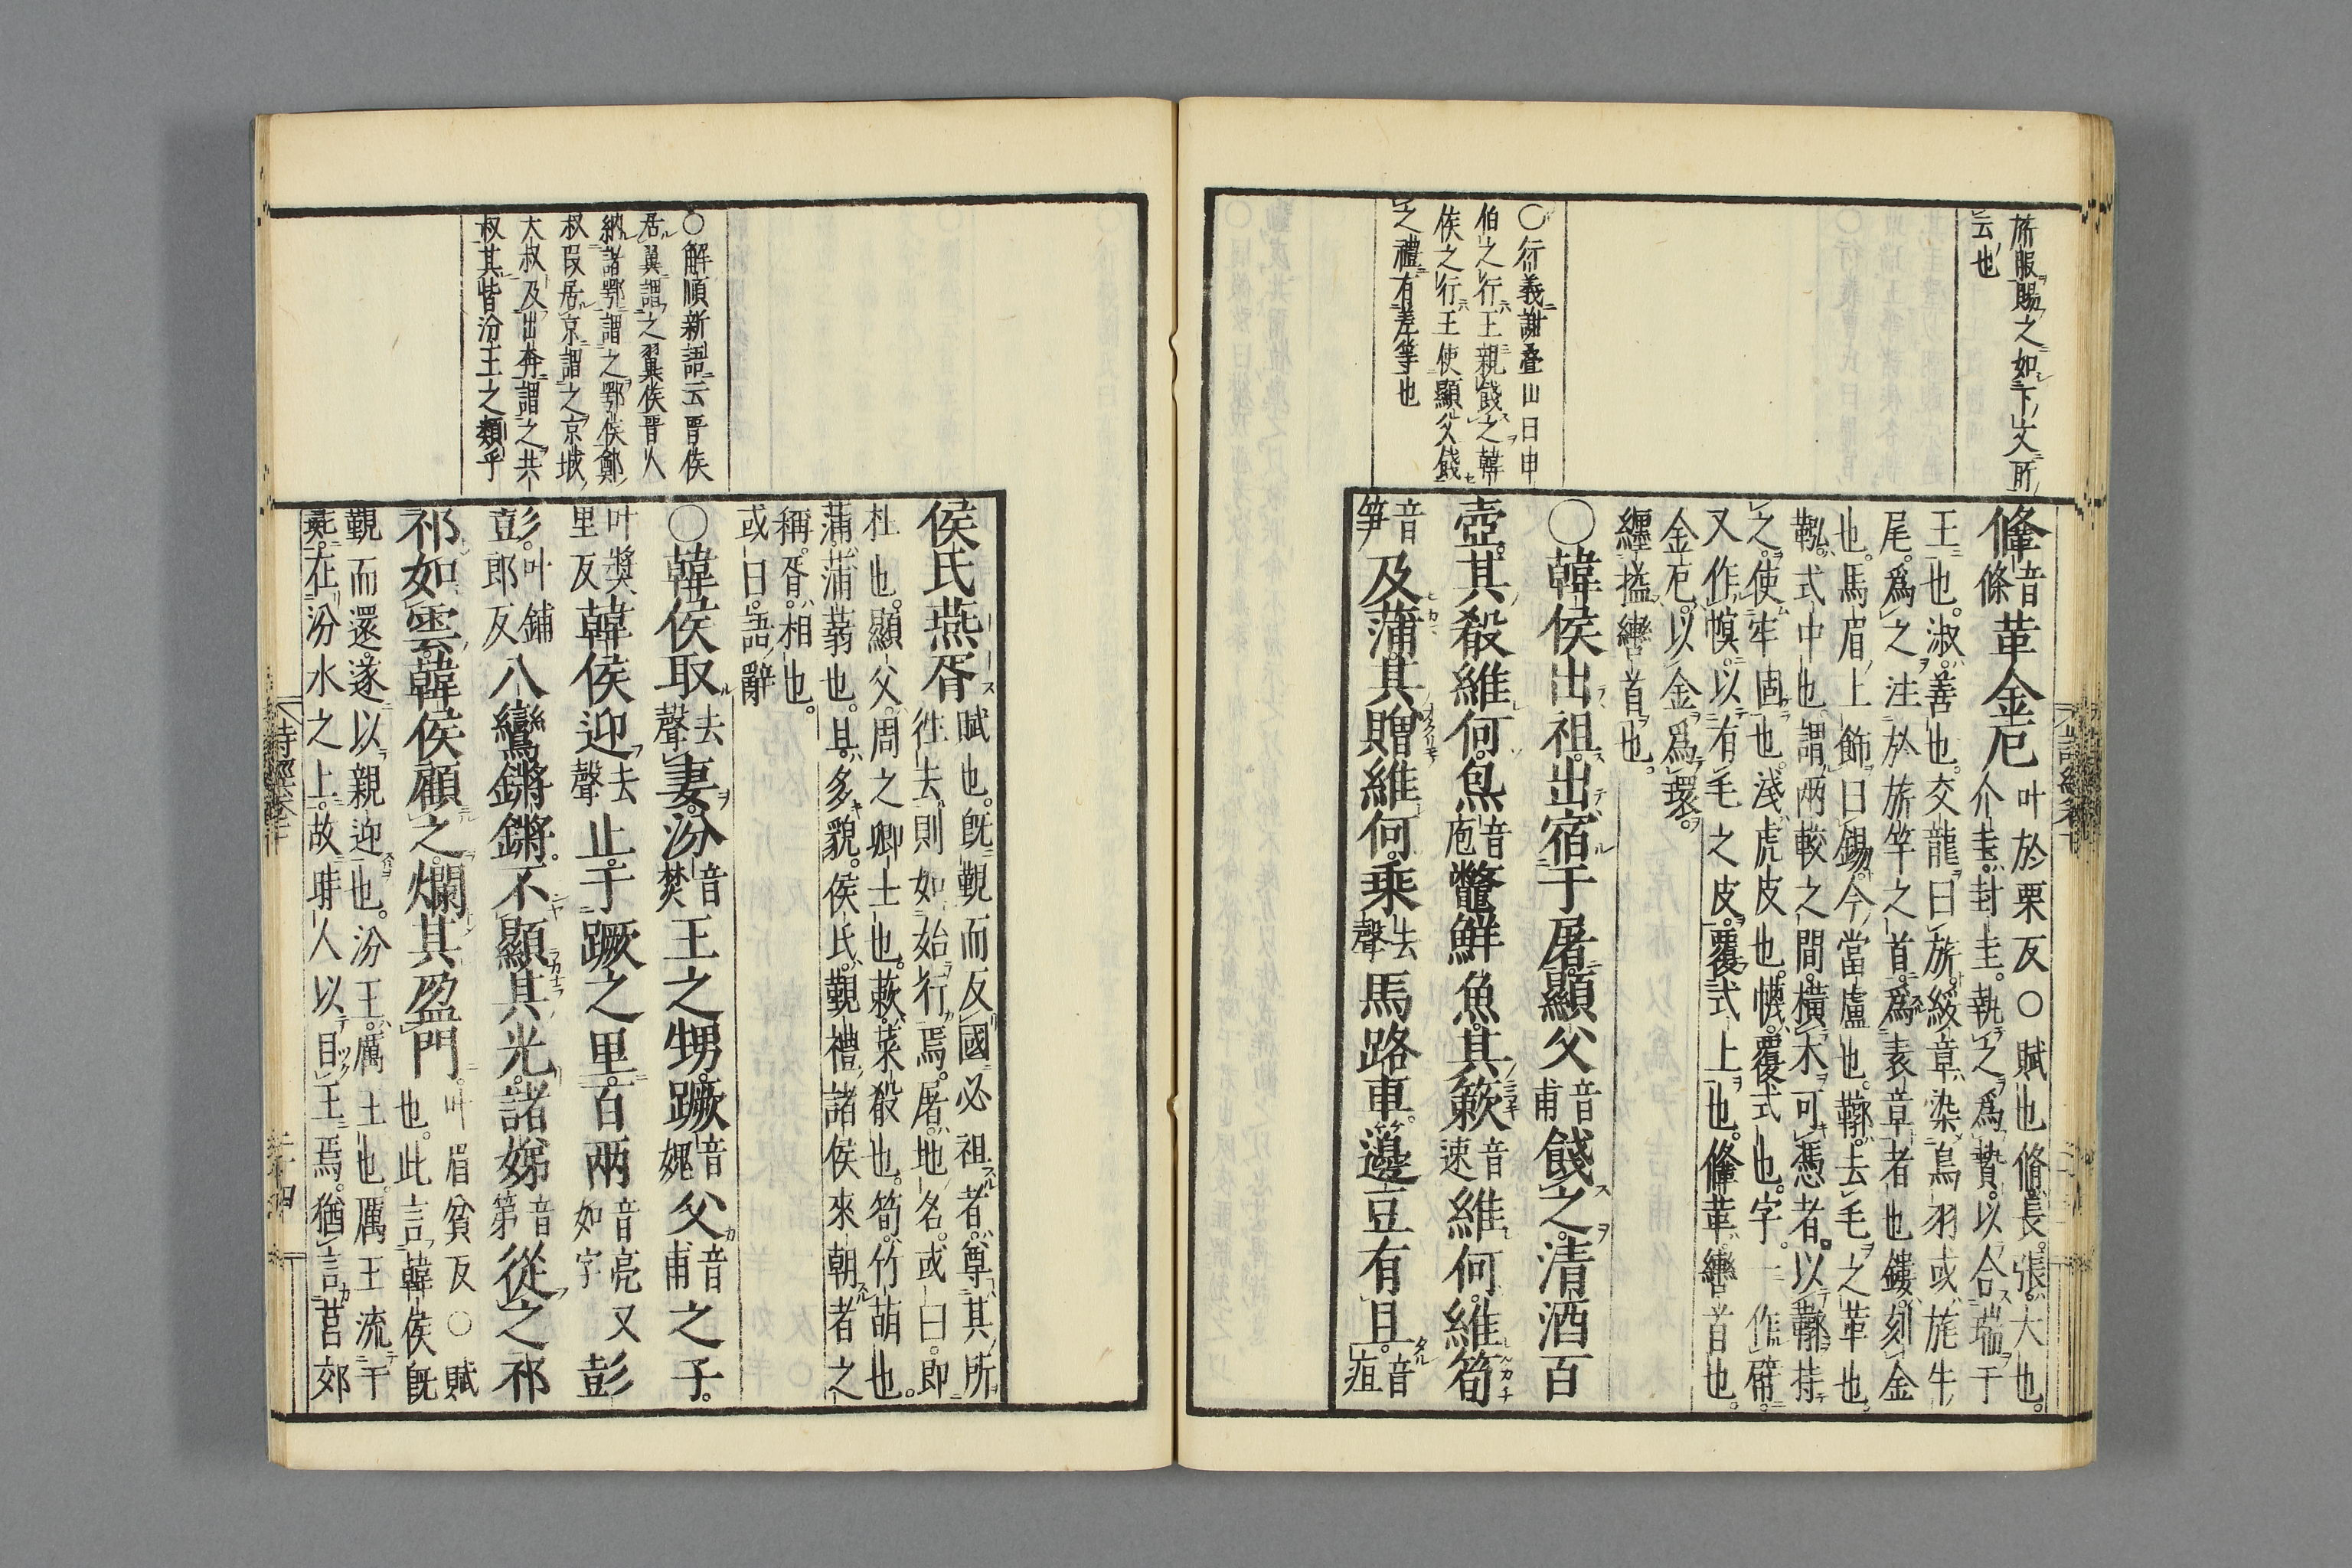 旂服賜之如下文所
云也
鞗音條革金厄叶於栗反○賦也脩長張大也
介圭封圭執之為贄以合瑞于
王也淑善也交龍曰旂綏章染鳥羽或旄牛
尾為之注於旂竿之首為表章者也鏤刻金
也馬眉上飾曰鍚今當盧也鞹去毛之革也
鞃式中也謂兩較之間橫木可憑者以鞹持
之使牢固也淺虎皮也幭覆式也字一作幦
又作幎以有毛之皮覆式上也鞗革轡首也
金厄以金為環
纏搤轡首也
○衍義謝疊山曰申
伯之行王親餞之韓
侯之行王使顯父餞
之禮有差等也
○韓侯出祖出宿于屠顯父音甫餞之清酒百
壺其殽維何炰音庖鼈鮮魚其蔌音速維何維筍
音笋及蒲其贈維何乘去聲馬路車籩豆有且音疽
侯氏燕胥賦也既覲而反國必祖者尊其所
往去則如始行焉屠地名或曰即
杜也顯父周之卿士也蔌菜殽也筍竹萌也
蒲蒲蒻也且多貌侯氏覲禮諸侯來朝者之
稱胥相也
或曰語辭
○解順新語云晉侯
居翼謂之翼侯晉人
納諸鄂謂之鄂侯鄭
叔段居京謂之京城
大叔及出奔謂之共
叔其皆汾王之類乎
○韓侯取去聲妻汾音焚王之甥蹶音媿父音甫之子
叶獎里反韓侯迎去聲止于蹶之里百兩音亮又如字彭
彭叶鋪郎反八鸞鏘鏘不顯其光諸娣音第從之祁
祁如雲韓侯顧之爛其盈門叶眉貧反○賦也此言韓侯既
覲而還遂以親迎也汾王厲王也厲王流于
彘在汾水之上故時人以目王焉猶言莒郊
詩經卷下
二十四